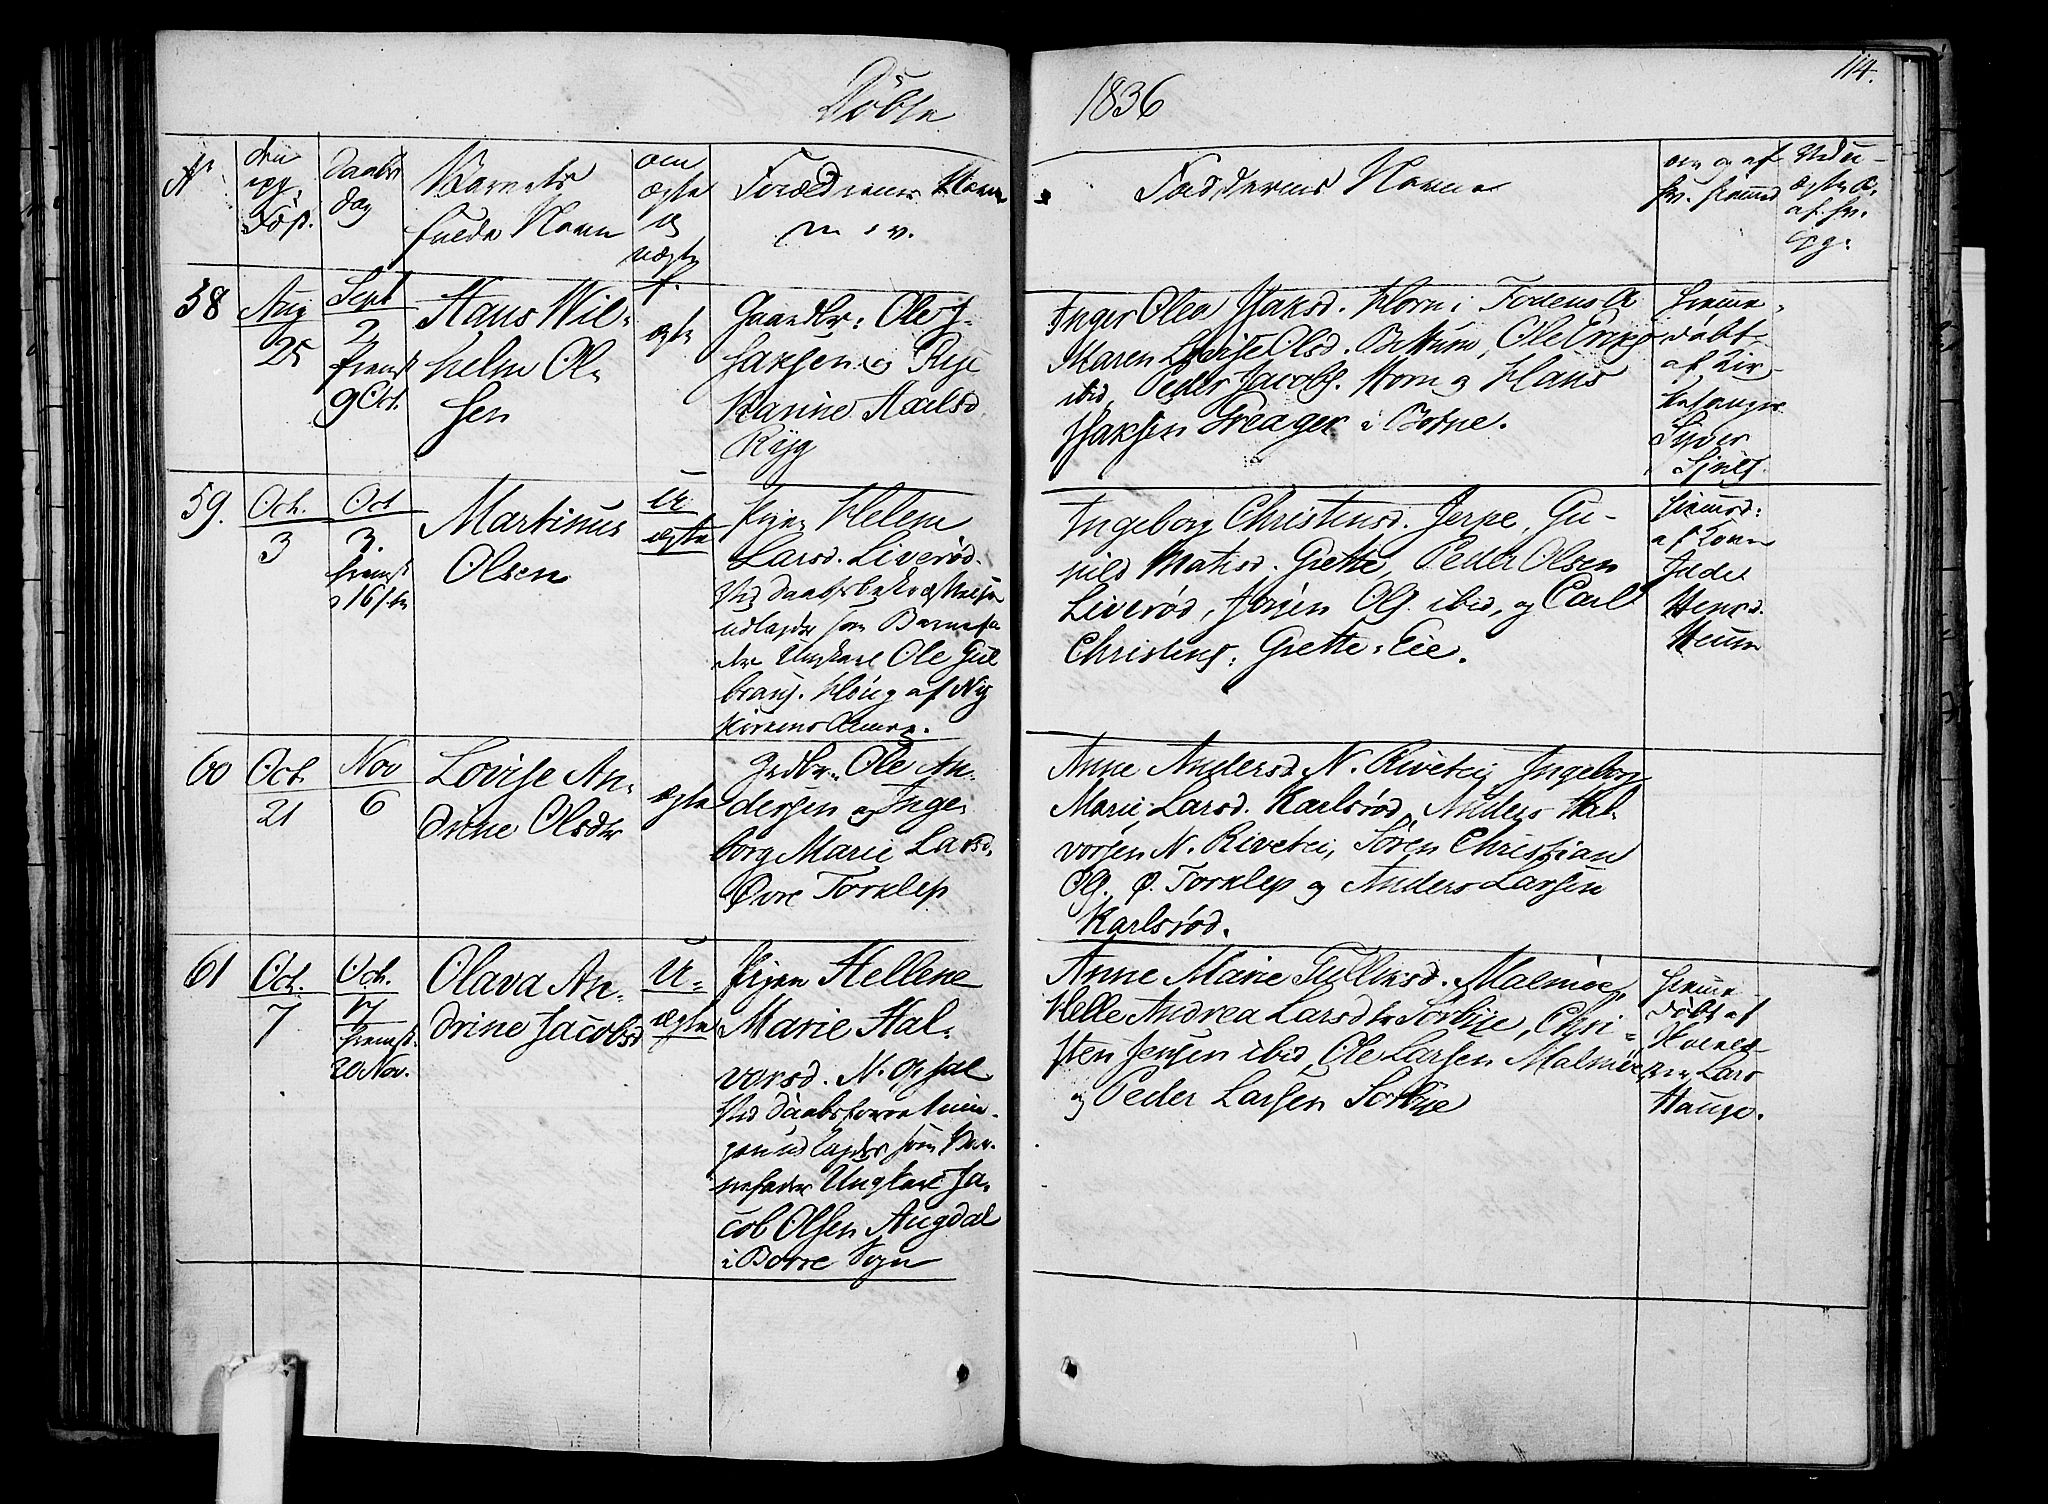 Döbte
1836
114.
Nr
den
Föd.
Daabs
dag
Barnets
fulde Navn
om
ægte
Forældrenes Navne
m. v.
Faddernes Navne
58
Aug
25
Sept
2
fremst
9 Oct.
Hans Wil-
helm Ol-
sen
ægte
Gaardbr: Ole J-
saksen og
Karine Axelsd.
Ryg
Inger Olea Isaksd. Horn i
Maren Lovise Olsd. Bettum, Ole
ibid, Peder Jacobs. Horn og Hans
Isaksen Freager i Botne.
Hjemme-
döbt
af Kir-
kesanger
Syver
59.
Oct.
3
Oct
3.
fremst
d 16de
Martinus
Olsen
U-
ægte
Pigen Helene
Larsd. Liverød.
Ved Daabsbekræftelsen
udlagdes som Barnefa-
der Ungkarl Ole Gul
brans. Höug af Ny
Kirkens Annex.
Ingeborg Christensd. Jerpe, Gu-
nild Matisd. Grette, Peder Olsen
Liverød, Jörgen Ols. ibid, og Carl
Christens: Grette-Eie.
Hjemmed:
af Kone
Henrd.
Heum
60
Oct.
21
Nov
6
Lovise An-
drine Olsdtr
ægte
Grdbr: Ole An-
dersen og Inge-
borg Marie Larsd.
Øvre Torklep
Anne Andersd. N. Rivetei, Ingeborg
Marie Larsd. Karlsrød, Anders Hal-
vorsen N. Rivetei, Søren Christian
Ols. Ø. Torklep og Anders Larsen
Karlsrød.
61
Oct.
7
Oct.
17
fremst.
20 Nov.
Olava An-
drine Jacobsd
U-
ægte
Pigen Hellene
Marie Hal-
vorsd. N. Opsal
Ved Daabsforretnin-
gen udlagdes som Bar-
nefader Ungkarl Ja-
cob Olsen Augdal
i Borre Sogn
Anne Marie Tulliksd. Malmøe,
Helle Andrea Larsdtr Sørbye, Chri-
sten Jensen ibid, Ole Larsen Malmøe
og Peder Larsen Sørbye
Hjemme-
döbt af
Lars
Hauge.